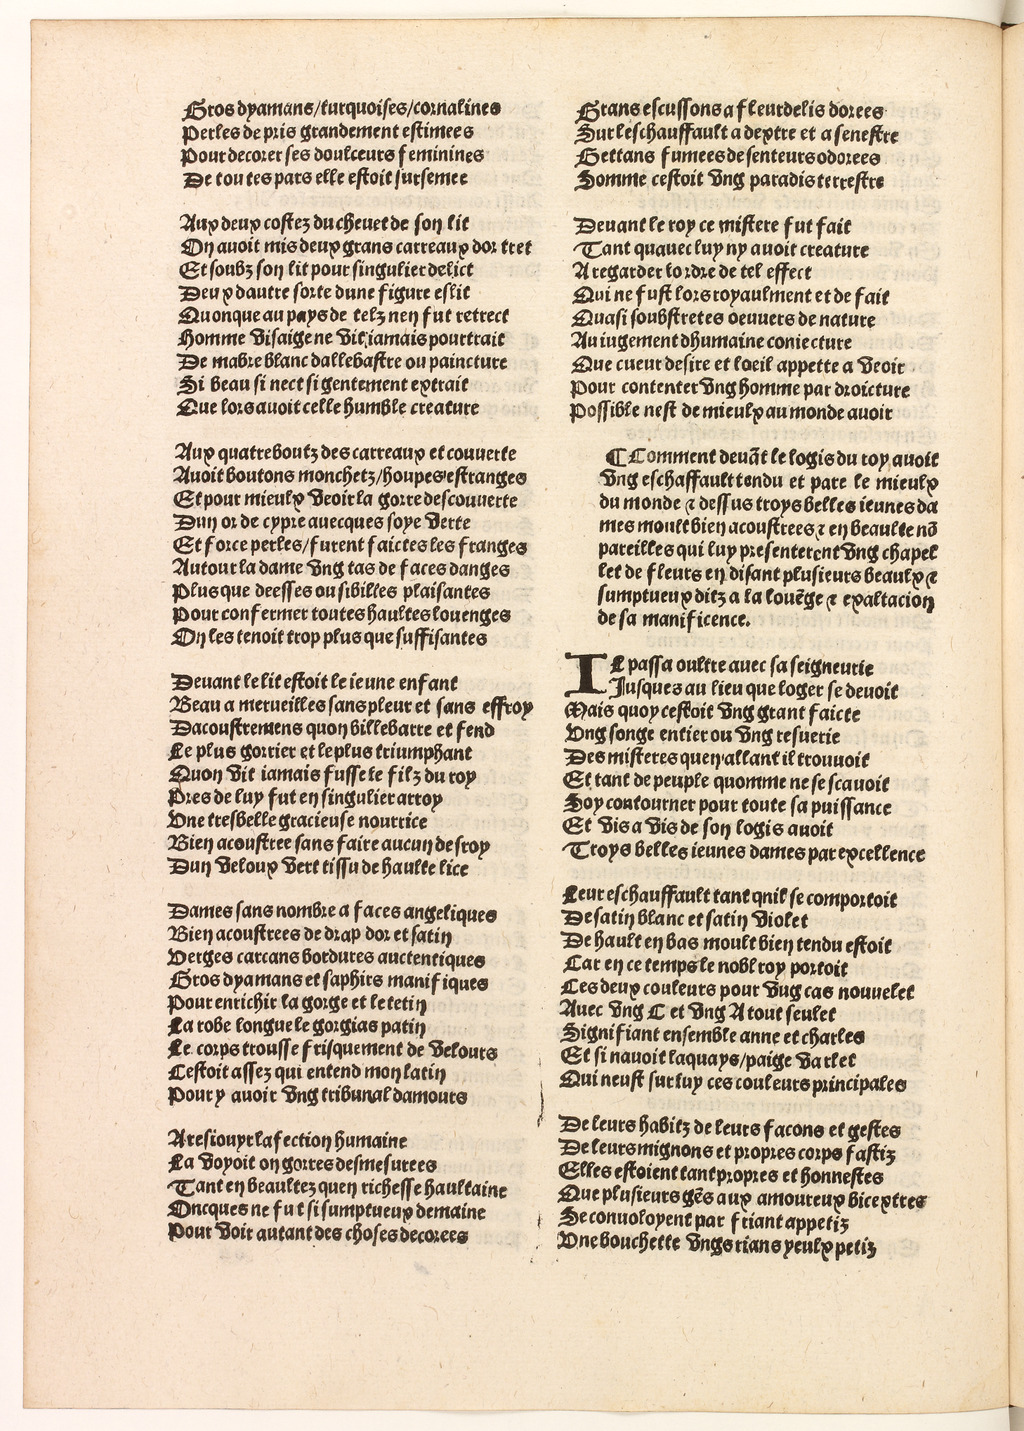 Gros dyamans/turquoises/cornalines
Perles de pris grandement estimees
Pour decorer ses doulceurs feminines
De toutes pars elle estoit sursemee
Aux deux costez du chevet de son lit
On avoit mis deux grans carreaux dor tret
Et soubz son lit pour singulier delict
Deux dautre sorte dune figure eslit
Quonque au pays de telz nen fut retrect
Homme visaige ne vit iamais pourtrait
De mabre blanc dallebastre ou paincture
Si beau si nect si gentement extrait
Que lors avoit celle humble creature
Aux quatre boutz des carreaux et couverte
Avoit boutons monchetz/houpes estranges
Et pour mieulx veoir la gorre descouverte
Dun or de cypre avecques soye verte
Et force perles/furent faictes les franges
Autour la dame vng tas de faces danges
Plus que deesses ou sibilles plaisantes
Pour confermer toutes haultes louenges
On les tenoit trop plus que suffisantes
Devant le lit estoit le ieune enfant
Beau a merueilles sans pleur et sans effroy
Dacoustremens quon billebarre et fend
Le plus gorrier et le plus triumphant
Quon vit iamais fusse le filz du roy
Pres de luy fut en singulier arroy
Vne tresbelle gracieuse nourrice
Bien acoustree sans faire aucun desroy
Dun veloux vert tissu de haulte lice
Dames sans nombre a faces angeliques
Bien acoustrees de drap dor et satin
Verges carcans bordures auctentiques
Gros dyamans et saphirs manifiques
Pour enrichir la gorge et le tetin
La robe longue le gorgias patin
Le corps trousse frisquement de velours
Cestoit assez qui entend mon latin
Pour y avoir vng tribunal damours
A resiouyr lafection humaine
La voyoit on gorres desmesurees
Tant en beaultez quen richesse haultaine
Oncques ne fut si sumptueux demaine
Pour voir autant des choses decorees
Grans escussons a fleurdelis dorees
Sur leschauffault a dextre et a senestre
Gettans fumees de senteurs odorees
Somme cestoit vng paradis terrestre
Devant le roy ce mistere fut fait
Tant quavec luy ny avoit creature
A regarder lordre de tel effect
Qui ne fust lors royaulment et de fait
Quasi soubstretes oeuvers de nature
Au iugement dhumaine coniecture
Que cueur desire et loeil appette a veoir
Pour contenter vng homme par droicture
Possible nest de mieulx au monde avoir
¶ Comment devãt le logis du roy avoit
vng eschaffault tendu et pare le mieulx
du monde ⁊ dessus troys belles ieunes da
mes moult bien acoustrees ⁊ en beaulte nõ
pareilles qui luy presenterent vng chapel
let de fleurs en disant plusieurs beaulx ⁊
sumptueux ditz a la louẽge ⁊ exaltacion
de sa manificence.
Il passa oultre avec sa seigneurie
Jusques au lieu que loger se devoit
Mais quoy cestoit vng grant faicte
Vng songe entier ou vng resverie
Des misteres quen allant il trouvoit
Et tant de peuple quomme ne se scavoit
Soy contourner pour toute sa puissance
Et vis a vis de son logis avoit
Troys belles ieunes dames par excellence
Leur eschauffault tant qnil se comportoit
De satin blanc et satin violet
De hault en bas moult bien tendu estoit
Car en ce temps le nobl roy portoit
Ces deux couleurs pour vug cas nouvelet
Avec vng C et vng A tout seulet
Signifiant ensemble anne et charles
Et si navoit laquays/paige varlet
Qui neust sur luy ces couleurs principales
De leurs habitz de leurs facons et gestes
De leurs mignons et propres corps fastiz
Elles estoient tant propres et honnestes
Que plusieurs gẽs aux amoureux bicextres
Se convoloyent par friant appetiz
Vne bouchette vngs rians yeulx petiz